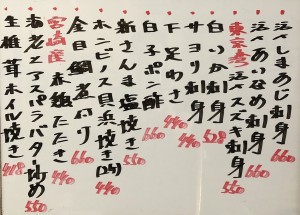 活〆しまあじ刺身 660
活〆あいなめ刺身 660
東京湾 活〆スズキ刺身 550
白いか刺身 528
サヨリ刺身 440
下足わさ 440
白子ポン酢 660
新さんま塩焼き 550
ホンビノス貝浜焼き(2ケ) 440
金目鯛煮付け 660
宮崎産 赤鶏たたき
海老とアスパラバター炒め 550
生椎茸ホイル焼き 418